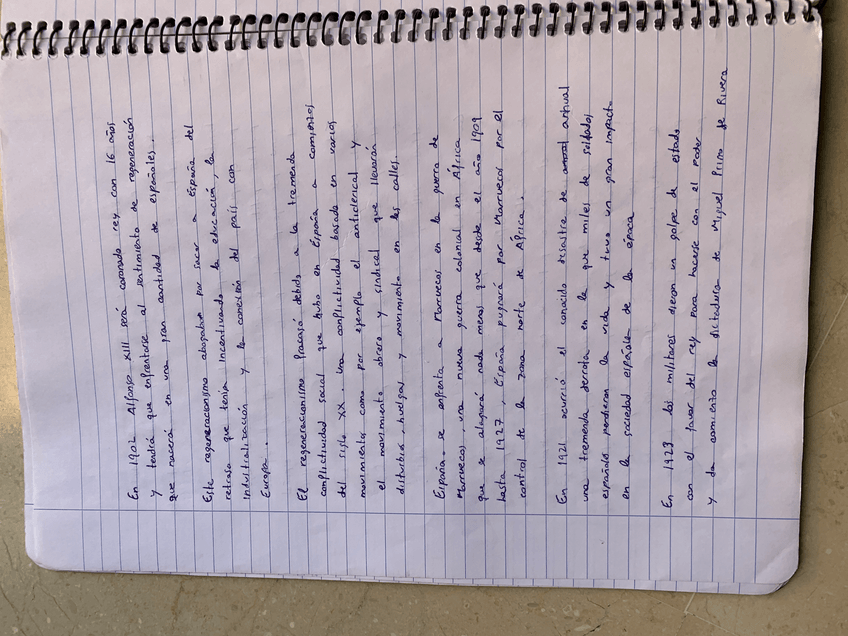 En 1902 Alfonso XIII será coronado rey con 16 años
y tendrá que enfrentarse al sentimiento de regeneración
que nacerá en una gran cantidad de españoles.
Este regeneracionismo abogaba por sacar a España del
retraso que tenía incentivando la educación, la
industrialización y la conexión del país con
Europa.
El regeneracionismo fracasó debido a la tremenda
conflictividad social que hubo en España a comienzos
del siglo XX. Una conflictividad basada en varios
movimientos como por ejemplo el anticlerical y
el movimiento obrero y sindical que llevarán
disturbios, huelgas y movimiento en las calles.
España se enfrenta a Marruecos en la guerra de
Marruecos, una nueva guerra colonial en África
que se alargará nada menos que desde el año 1909
hasta 1927, España pugnará por Marruecos por el
control de la zona norte de África.
En 1921 ocurrió el conocido desastre de annual
una tremenda derrota en la que miles de soldados
españoles perdieron la vida y tuvo un gran impacto
en la sociedad española de la época
En 1923 los militares dieron un golpe de estado
con el favor del rey para hacerse con el poder
y da comienzo la dictadura de Miguel Primo de Rivera